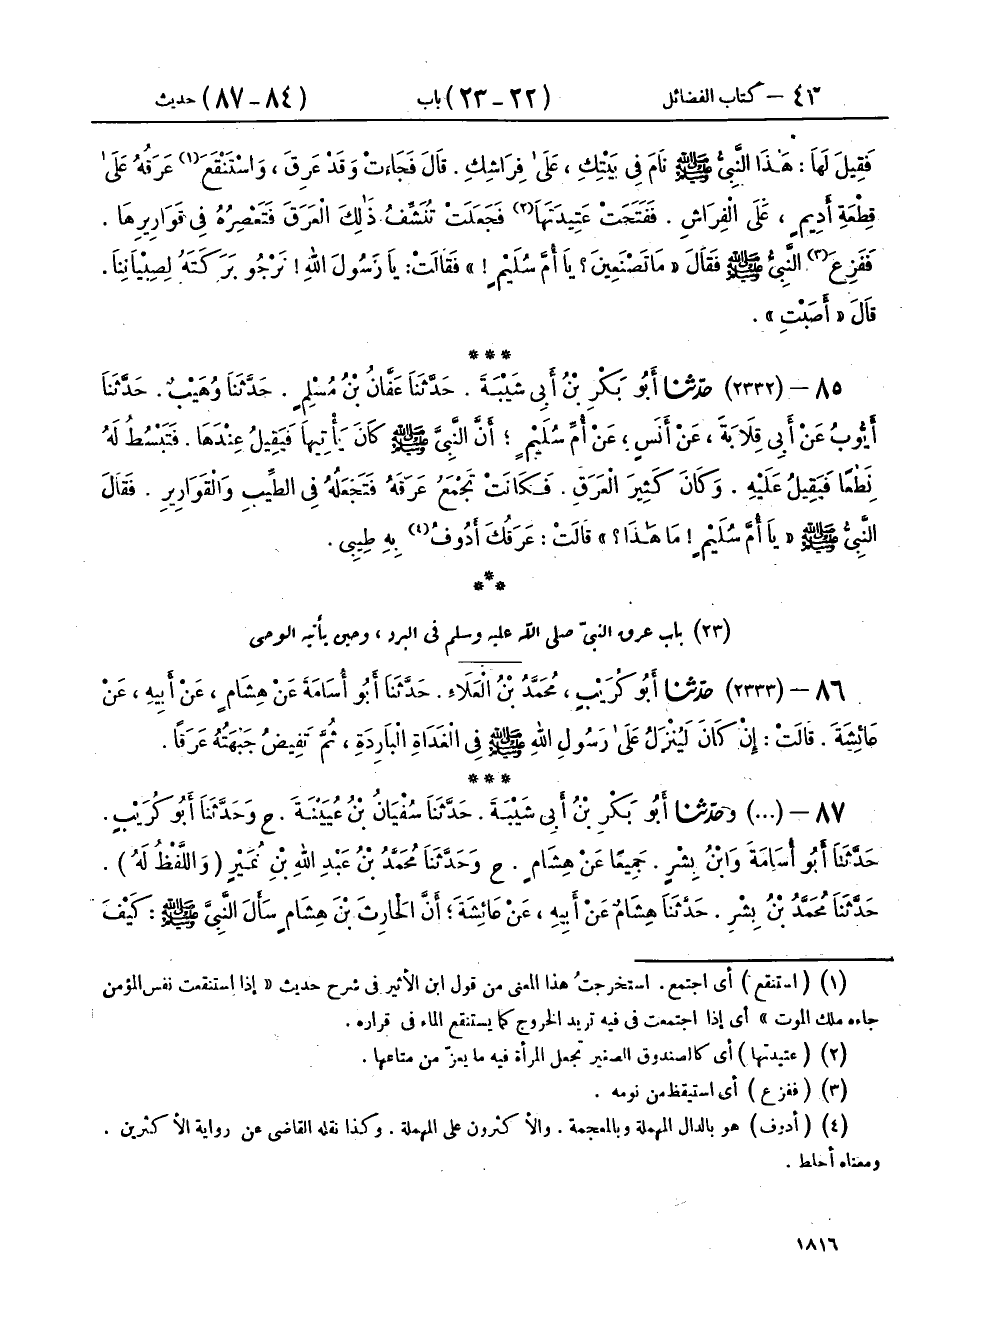 ٤٣ – كتاب الفضائل (٢٢ – ٢٣) باب (٨٤ – ٨٧) حديث
فَقِيلَ لَهَا : هَٰذَا النَّبِيُّ ﷺ نَامَ فِي بَيْتِكِ ، عَلَىٰ فِرَاشِكِ . قَالَ فَجَاءَتْ وَقَدْ عَرِقَ ، وَاسْتَنْقَعَ(١) عَرَقُهُ عَلَىٰ
قِطْعَةِ أَدِيمٍ ، عَلَى الْفِرَاشِ . فَفَتَحَتْ عَتِيدَتَهَا(٢) فَجَعَلَتْ تُنَشِّفُ ذَٰلِكَ الْعَرَقَ فَتَعْصِرُهُ فِي قَوَارِيرِهَا .
فَفَزِعَ(٣) النَّبِيُّ ﷺ فَقَالَ « مَا تَصْنَعِينَ ؟ يَا أُمَّ سُلَيْمٍ ! » فَقَالَتْ : يَا رَسُولَ اللهِ ! نَرْجُو بَرَكَتَهُ لِصِبْيَانِنَا .
قَالَ « أَصَبْتِ » .
***
٨٥ – (٢٣٣٢) حدّثنا أَبُو بَكْرِ بْنُ أَبِي شَيْبَةَ . حَدَّثَنَا عَفَّانُ بْنُ مُسْلِمٍ . حَدَّثَنَا وُهَيْبٌ . حَدَّثَنَا
أَيُّوبُ عَنْ أَبِي قِلَابَةَ ، عَنْ أَنَسٍ ، عَنْ أُمِّ سُلَيْمٍ ؛ أَنَّ النَّبِيَّ ﷺ كَانَ يَأْتِيهَا فَيَقِيلُ عِنْدَهَا . فَتَبْسُطُ لَهُ
نِطْعًا فَيَقِيلُ عَلَيْهِ . وَكَانَ كَثِيرَ الْعَرَقِ . فَكَانَتْ تَجْمَعُ عَرَقَهُ فَتَجْعَلُهُ فِي الطِّيبِ وَالْقَوَارِيرِ . فَقَالَ
النَّبِيُّ ﷺ « يَا أُمَّ سُلَيْمٍ ! مَا هَٰذَا ؟ » قَالَتْ : عَرَقُكَ أَدُوفُ(٤) بِهِ طِيبِي .
***
(٢٣) باب عرق النبيّ صلى الله عليه وسلم فى البرد ، وحين يأتيه الوحى
٨٦ – (٢٣٣٣) حدّثنا أَبُو كُرَيْبٍ ، مُحَمَّدُ بْنُ الْعَلَاءِ . حَدَّثَنَا أَبُو أُسَامَةَ عَنْ هِشَامٍ ، عَنْ أَبِيهِ ، عَنْ
عَائِشَةَ . قَالَتْ : إِنْ كَانَ لَيُنْزَلُ عَلَىٰ رَسُولِ اللهِ ﷺ فِي الْغَدَاةِ الْبَارِدَةِ ، ثُمَّ تَفِيضُ جَبْهَتُهُ عَرَقًا .
***
٨٧ – (...) وحدّثنا أَبُو بَكْرِ بْنُ أَبِي شَيْبَةَ . حَدَّثَنَا سُفْيَانُ بْنُ عُيَيْنَةَ . ح وَحَدَّثَنَا أَبُو كُرَيْبٍ .
حَدَّثَنَا أَبُو أُسَامَةَ وَابْنُ بِشْرٍ . جَمِيعًا عَنْ هِشَامٍ . ح وَحَدَّثَنَا مُحَمَّدُ بْنُ عَبْدِ اللهِ بْنِ نُمَيْرٍ ( وَاللَّفْظُ لَهُ ) .
حَدَّثَنَا مُحَمَّدُ بْنُ بِشْرٍ . حَدَّثَنَا هِشَامٌ عَنْ أَبِيهِ ، عَنْ عَائِشَةَ ؛ أَنَّ الْحَارِثَ بْنَ هِشَامٍ سَأَلَ النَّبِيَّ ﷺ : كَيْفَ
(١) ( استنقع ) أى اجتمع . استخرجتُ هذا المعنى من قول ابن الأثير فى شرح حديث « إذا استنقعت نفس المؤمن
جاءه ملك الموت » أى إذا اجتمعت فى فيه تريد الخروج كما يستنقع الماء فى قراره .
(٢) ( عتيدتها ) أى كالصندوق الصغير تجعل المرأة فيه ما يعزّ من متاعها .
(٣) ( ففزع ) أى استيقظ من نومه .
(٤) ( أدوف ) هو بالدال المهملة وبالمعجمة . والأكثرون على المهملة . وكذا نقله القاضى عن رواية الأكثرين .
ومعناه أخلط .
١٨١٦